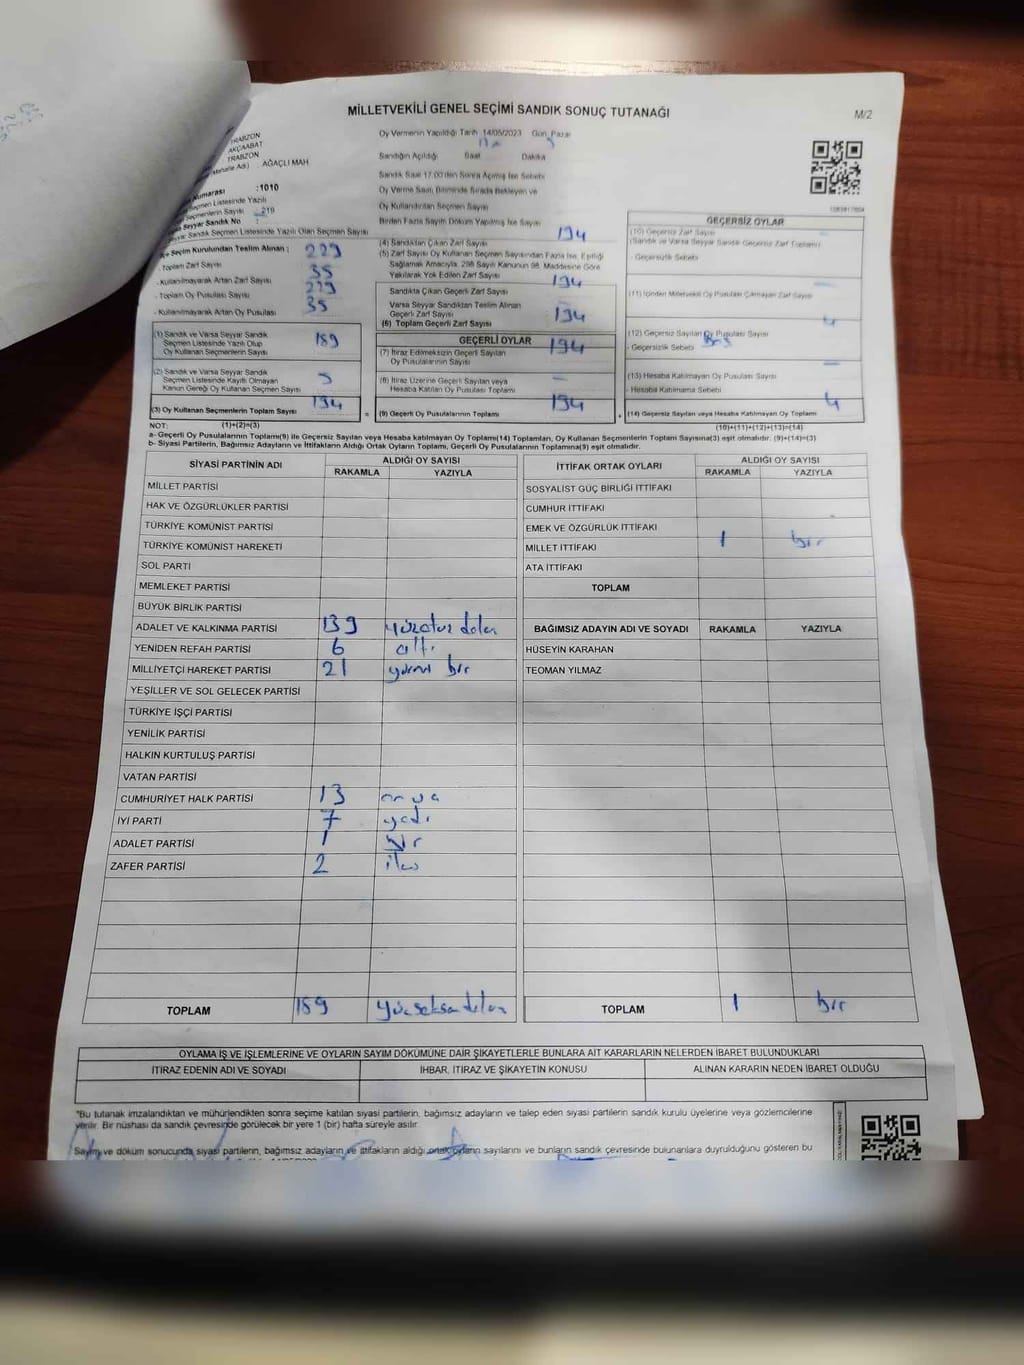 MİLLETVEKİLİ GENEL SEÇİMİ SANDIK SONUÇ TUTANAĞI
M/2
TRABZON
AKÇAABAT
TRABZON
AĞAÇLI MAH
Oy Vermenin Yapıldığı Tarih 14/05/2023 Gün Pazar
Sandığın Açıldığı Saat Dakika
Sandık Saat 17:00'den Sonra Açılmış İse Sebebi
Oy Verme Saati Bitiminde Sırada Bekleyen ve
Oy Kullandırılan Seçmen Sayısı
Birden Fazla Sayım Döküm Yapılmış İse Sayısı
Numarası :1010
Seçmen Listesinde Yazılı
Seçmenlerin Sayısı 219
Seyyar Sandık No :
Seyyar Sandık Seçmen Listesinde Yazılı Olan Seçmen Sayısı
Seçim Kurulundan Teslim Alınan : 229
. Toplam Zarf Sayısı
. Kullanılmayarak Artan Zarf Sayısı 35
. Toplam Oy Pusulası Sayısı 229
. Kullanılmayarak Artan Oy Pusulası 35
(1) Sandık ve Varsa Seyyar Sandık
Seçmen Listesinde Yazılı Olup
Oy Kullanan Seçmenlerin Sayısı 189
(2) Sandık ve Varsa Seyyar Sandık
Seçmen Listesinde Kayıtlı Olmayan
Kanun Gereği Oy Kullanan Seçmen Sayısı 5
(3) Oy Kullanan Seçmenlerin Toplam Sayısı 194
(1)+(2)=(3)
(4) Sandıktan Çıkan Zarf Sayısı 194
(5) Zarf Sayısı Oy Kullanan Seçmen Sayısından Fazla İse, Eşitliği
Sağlamak Amacıyla, 298 Sayılı Kanunun 98. Maddesine Göre
Yakılarak Yok Edilen Zarf Sayısı
Sandıkta Çıkan Geçerli Zarf Sayısı 194
Varsa Seyyar Sandıktan Teslim Alınan
Geçerli Zarf Sayısı
(6) Toplam Geçerli Zarf Sayısı 194
GEÇERLİ OYLAR
(7) İtiraz Edilmeksizin Geçerli Sayılan
Oy Pusulalarının Sayısı 194
(8) İtiraz Üzerine Geçerli Sayılan veya
Hesaba Katılan Oy Pusulası Toplamı –
(9) Geçerli Oy Pusulalarının Toplamı 194
GEÇERSİZ OYLAR
(10) Geçersiz Zarf Sayısı
(Sandık ve Varsa Seyyar Sandık Geçersiz Zarf Toplamı)
. Geçersizlik Sebebi
(11) İçinden Milletvekili Oy Pusulası Çıkmayan Zarf Sayısı
(12) Geçersiz Sayılan Oy Pusulası Sayısı 4
. Geçersizlik Sebebi Boş
(13) Hesaba Katılmayan Oy Pusulası Sayısı –
Hesaba Katılmama Sebebi
(14) Geçersiz Sayılan veya Hesaba Katılmayan Oy Toplamı 4
(10)+(11)+(12)+(13)=(14)
NOT:
a- Geçerli Oy Pusulalarının Toplamı(9) ile Geçersiz Sayılan veya Hesaba katılmayan Oy Toplamı(14) Toplamları, Oy Kullanan Seçmenlerin Toplam Sayısına(3) eşit olmalıdır. (9)+(14)=(3)
b- Siyasi Partilerin, Bağımsız Adayların ve İttifakların Aldığı Ortak Oyların Toplamı, Geçerli Oy Pusulalarının Toplamına(9) eşit olmalıdır.
SİYASİ PARTİNİN ADI ALDIĞI OY SAYISI
RAKAMLA YAZIYLA
MİLLET PARTİSİ
HAK VE ÖZGÜRLÜKLER PARTİSİ
TÜRKİYE KOMÜNİST PARTİSİ
TÜRKİYE KOMÜNİST HAREKETİ
SOL PARTİ
MEMLEKET PARTİSİ
BÜYÜK BİRLİK PARTİSİ
ADALET VE KALKINMA PARTİSİ 139
YENİDEN REFAH PARTİSİ 6 altı
MİLLİYETÇİ HAREKET PARTİSİ 21 yirmi bir
YEŞİLLER VE SOL GELECEK PARTİSİ
TÜRKİYE İŞÇİ PARTİSİ
YENİLİK PARTİSİ
HALKIN KURTULUŞ PARTİSİ
VATAN PARTİSİ
CUMHURİYET HALK PARTİSİ 13
İYİ PARTİ 7 yedi
ADALET PARTİSİ 1 bir
ZAFER PARTİSİ 2 iki
TOPLAM 189
İTTİFAK ORTAK OYLARI ALDIĞI OY SAYISI
RAKAMLA YAZIYLA
SOSYALİST GÜÇ BİRLİĞİ İTTİFAKI
CUMHUR İTTİFAKI
EMEK VE ÖZGÜRLÜK İTTİFAKI
MİLLET İTTİFAKI 1 bir
ATA İTTİFAKI
TOPLAM
BAĞIMSIZ ADAYIN ADI VE SOYADI RAKAMLA YAZIYLA
HÜSEYİN KARAHAN
TEOMAN YILMAZ
TOPLAM 1 bir
OYLAMA İŞ VE İŞLEMLERİNE VE OYLARIN SAYIM DÖKÜMÜNE DAİR ŞİKAYETLERLE BUNLARA AİT KARARLARIN NELERDEN İBARET BULUNDUKLARI
İTİRAZ EDENİN ADI VE SOYADI İHBAR, İTİRAZ VE ŞİKAYETİN KONUSU ALINAN KARARIN NEDEN İBARET OLDUĞU
"Bu tutanak imzalandıktan ve mühürlendikten sonra seçime katılan siyasi partilerin, bağımsız adayların ve talep eden siyasi partilerin sandık kurulu üyelerine veya gözlemcilerine
verilir. Bir nüshası da sandık çevresinde görülecek bir yere 1 (bir) hafta süreyle asılır.
Sayım ve döküm sonucunda siyasi partilerin, bağımsız adayların ve ittifakların aldığı ortak oyların sayılarını ve bunların sandık çevresinde bulunanlara duyrulduğunu gösteren bu